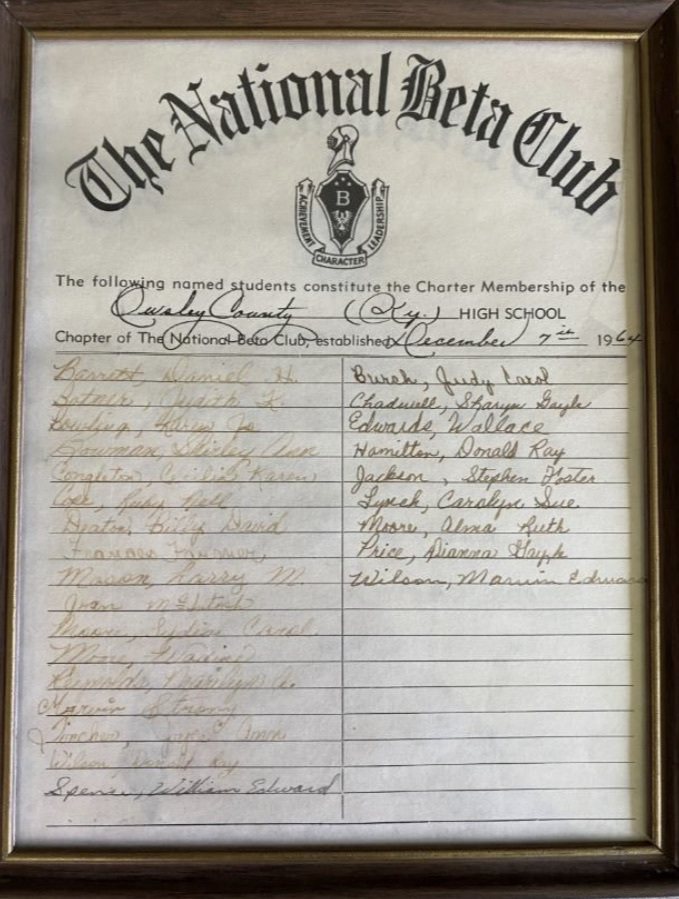 The National Beta Club
B
ACHIEVEMENT
LEADERSHIP
CHARACTER
The following named students constitute the Charter Membership of the
Owsley County (Ky.) HIGH SCHOOL
Chapter of The National Beta Club, established December 7th 1964
Barrett, Daniel H.
Botner, Judith K.
Bowling, Karen Jo
Bowman, Shirley Ann
Congleton, Karen
Cope, Ruby Nell
Deaton, Billy David
Frances
Mason, Larry M.
Joan McIntosh
Moore, Carol
Moore,
Reynolds, Marilyn A.
Marvin Strong
Ann
Wilson, Donald Ray
Spence, William Edward
Burch, Judy Carol
Chadwell, Sharyn Gayle
Edwards, Wallace
Hamilton, Donald Ray
Jackson, Stephen Foster
Lynch, Carolyn Sue
Moore, Alma Ruth
Price, Dianna Gayle
Wilson, Marvin Edward